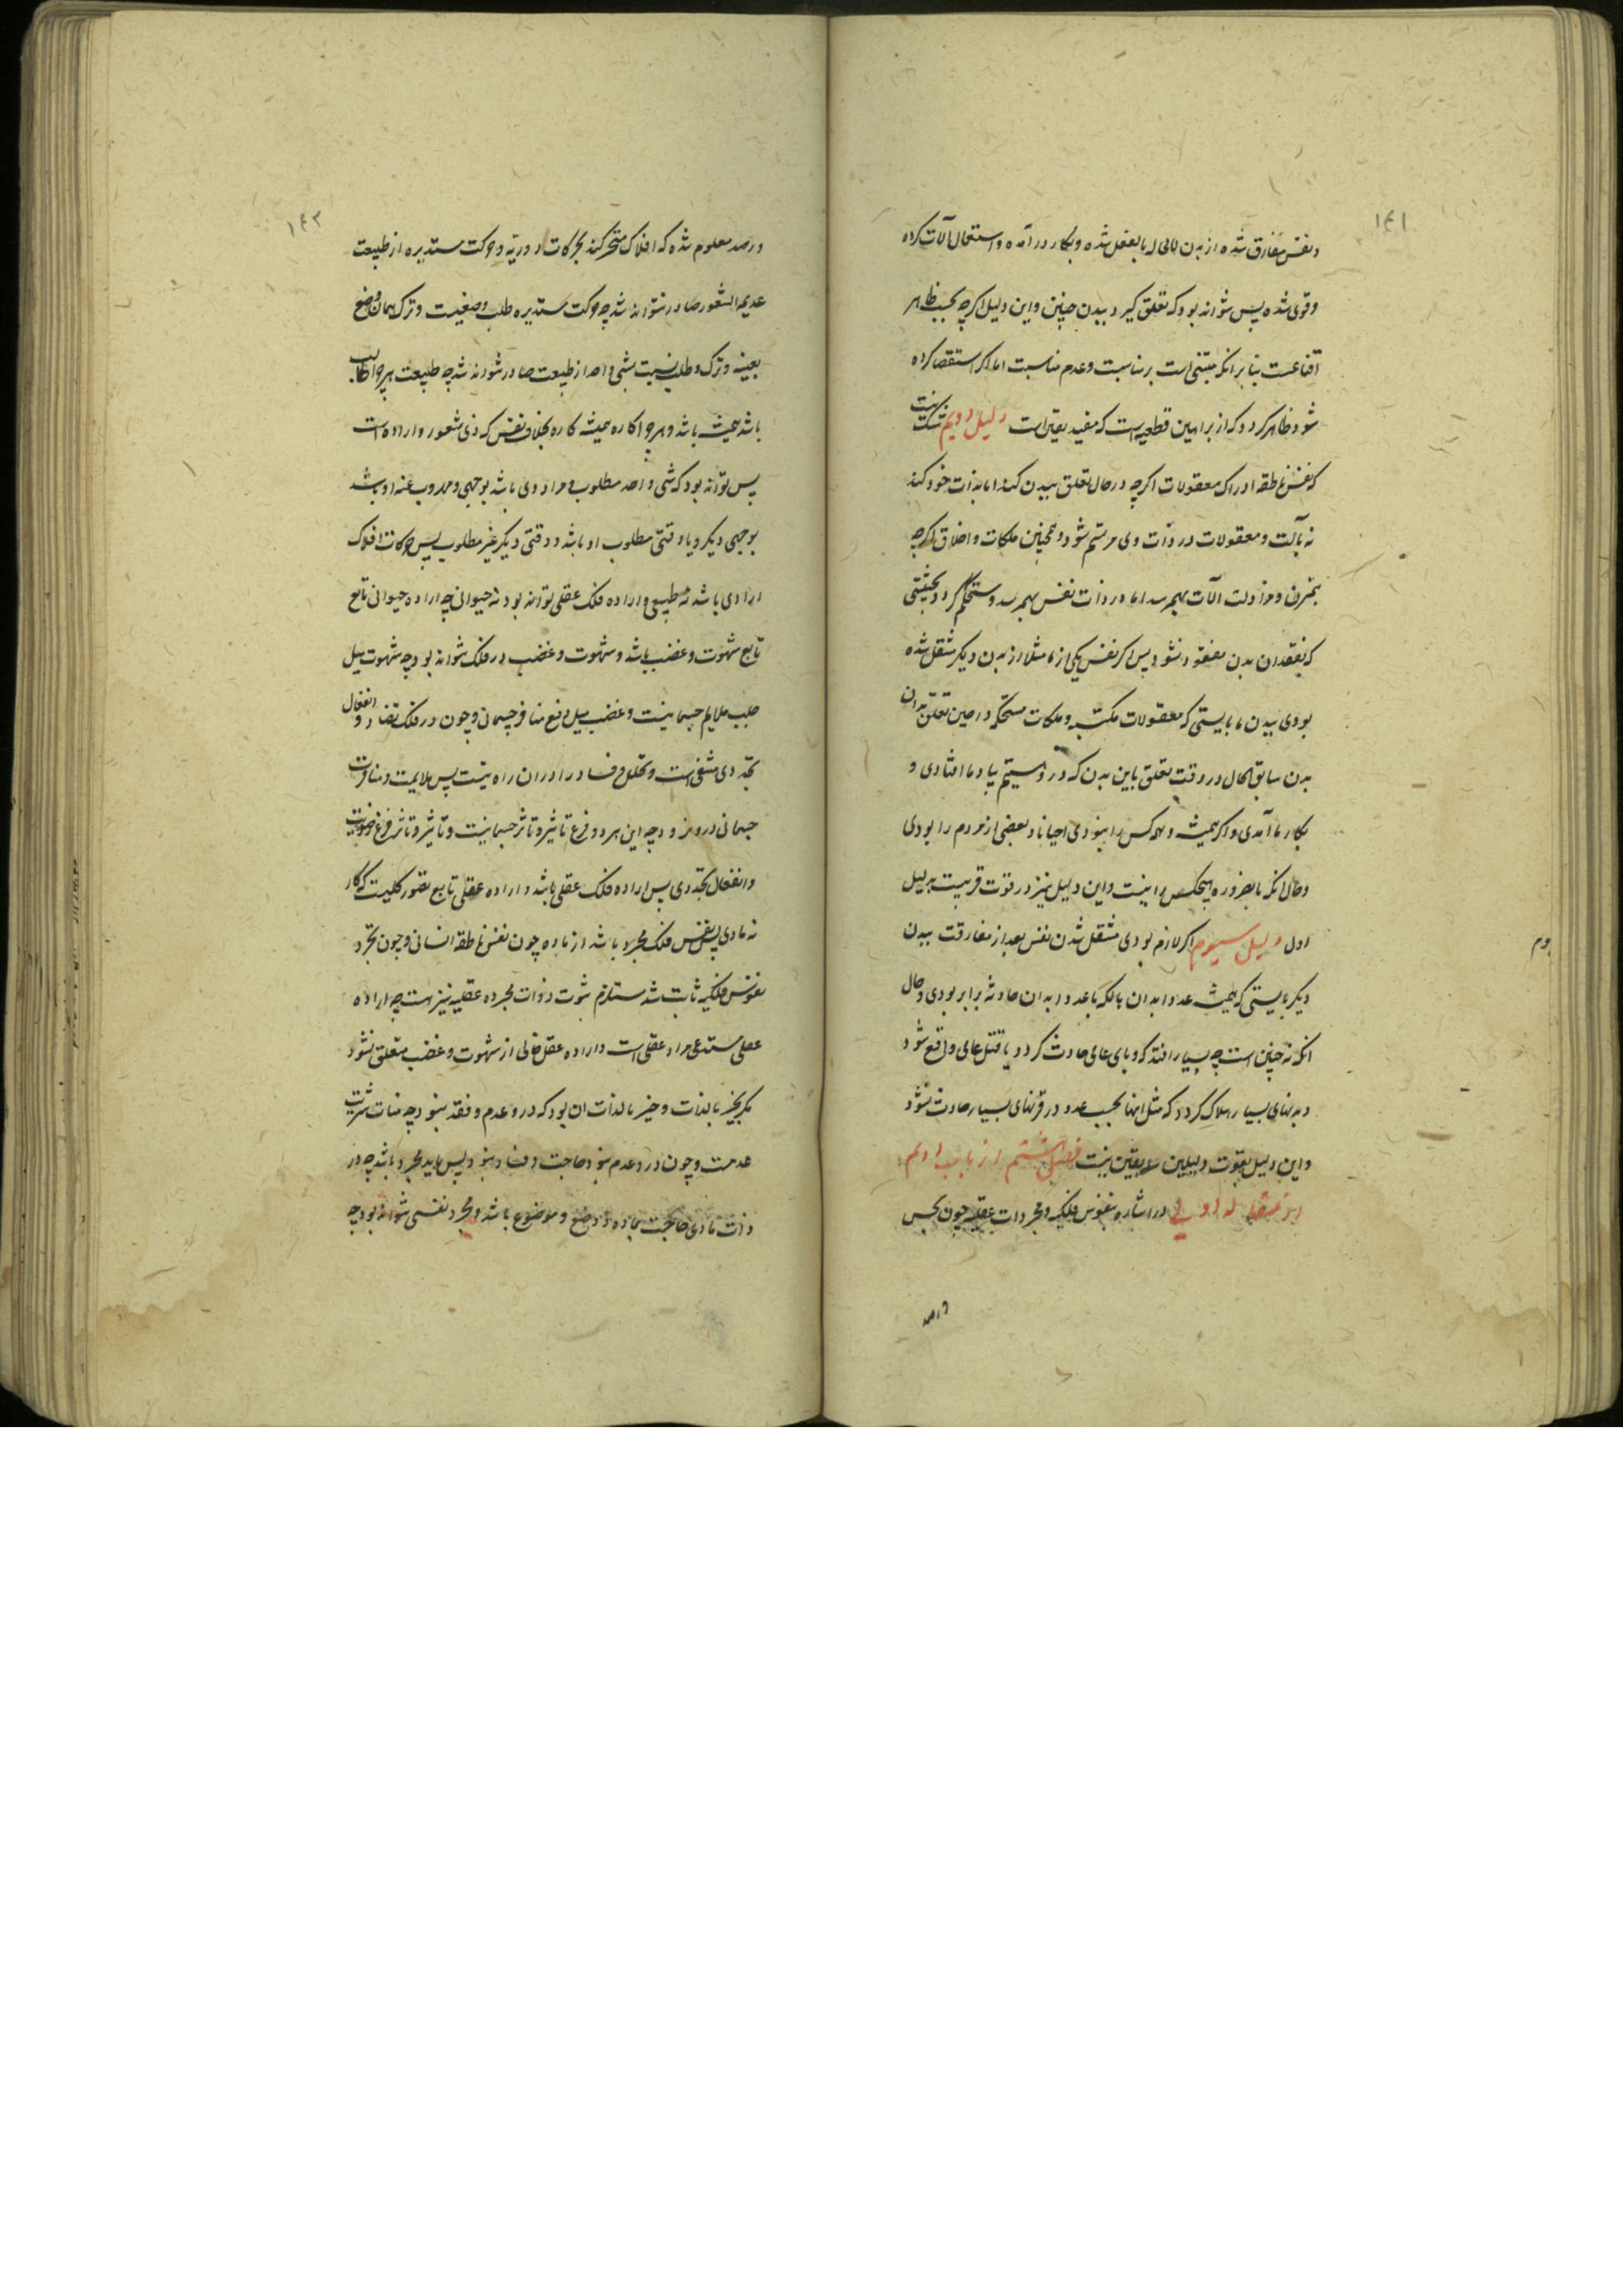 ۱۴۱
و نفس مفارق شده از بدن کمال او بالفعل شده و بکار در آمده و استعمال آلات کرده
و قوی شده پس نتواند بود که تعلق گیرد ببدن جنین و این دلیل اگرچه بحسب ظاهر
اقناعیست بنا بر آنکه مبتنی است بر مناسبت و عدم مناسبت اما اگر استقصا کرده
شود ظاهر گردد که از براهین قطعیه است که مفید یقین است دلیل دویم شک نیست
که نفس ناطقه ادراک معقولات اگرچه در حال تعلق ببدن کند اما بذات خود کند
نه بآلت و معقولات در ذات وی مرتسم شود و همچنین ملکات و اخلاق اگرچه
بتمرن و مزاولت آلات بهم رسد اما در ذات نفس بهم رسد و مستحکم گردد بحیثیتی
که بفقدان بدن مفقود نشود پس اگر نفس یکی از ما مثلا از بدن دیگر منتقل شده
بودی ببدن ما بایستی که معقولات مکتسبه و ملکات مستحکمه در حین تعلق بدان
بدن سابق الحال در وقت تعلق باین بدن که در وییم بیاد ما افتادی و
بکار ما آمدی و اگر همیشه و همه کس را نبودی احیانا و بعضی از مردم را بودی
و حال آنکه بالضروره هیچکس را نیست و این دلیل نیز در قوت قریبست بدلیل
اول دلیل سیوم اگر لازم بودی منتقل شدن نفس بعد از مفارقت ببدن
دیگر بایستی که همیشه عدد ابدان هالکه با عدد ابدان حادثه برابر بودی و حال
آنکه نه چنین است چه بسیار افتد که وبای عامی حادث گردد یا قتل عامی واقع شود
و بدنهای بسیار هلاک گردد که مثل آنها بحسب عدد در قرنهای بسیار حادث نشود
و این دلیل بقوت دلیلین سابقین نیست فصل هشتم از باب دویم
از مقاله اولی در اشاره بنفوس فلکیه و مجردات عقلیه چون بحس
و رصد
دوم
۱۴۲
و رصد معلوم شده که افلاک متحرکند بحرکات دوریه و حرکت مستدیره از طبیعت
عدیم الشعور صادر نتواند شد چه حرکت مستدیره طلب وضعیست و ترک همان وضع
بعینه و ترک و طلب نسبت بشیء واحد از طبیعت صادر نتواند شد چه طبیعت هرچه را طالب
باشد همیشه باشد و هرچه را کاره همیشه کاره بخلاف نفس که ذی شعور و اراده است
پس تواند بود که شیء واحد مطلوب و مراد وی باشد بوجهی و مهروب عنه او باشد
بوجهی دیگر و یا وقتی مطلوب او باشد و وقتی دیگر غیر مطلوب پس حرکات افلاک
ارادی باشد نه طبیعی و اراده فلک عقلی تواند بود نه حیوانی چه اراده حیوانی تابع
تابع شهوت و غضب باشد و شهوت و غضب در فلک نتواند بود چه شهوت میل
جلب ملایم جسمانیست و غضب میل دفع منافر جسمانی و چون در فلک تضاد و انفعال
تجددی منتفی است و تخلل و فساد را در آن راه نیست پس ملایمت و منافرت
جسمانی درو نرود چه این هر دو فرع تاثیر و تاثر جسمانیست و تاثیر و تاثر فرع ضدیت
و انفعال تجددی پس اراده فلک عقلی باشد و اراده عقلی تابع تصور کلیت که کار
نه مادی پس نفس فلک مجرد باشد از ماده چون نفس ناطقه انسانی و چون تجرد
نفوس فلکیه ثابت شد مستلزم ثبوت ذوات مجرده عقلیه نیز هست چه اراده
عقلی مستدعی مراد عقلی است و اراده عقل خالی از شهوت و غضب متعلق نشود
مگر بخیر بالذات و خیر بالذات آن بود که درو عدم و فقد نبود چه منات شریت
عدمست و چون درو عدم نبود حاجت و فساد نبود پس باید مجرد باشد چه در
ذات مادی حاجت بماده و وضع و موضوع باشد و مجرد نفسی نتواند بود چه